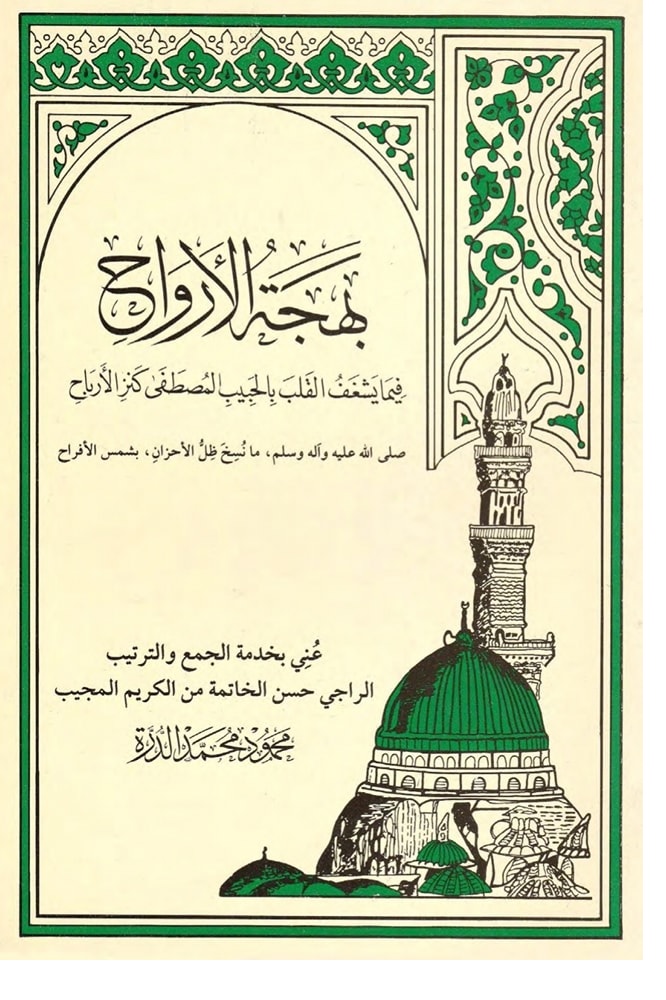 بَهجَةُ الأَروَاحِ
فِيمَا يَشغَفُ القَلبَ بِالحَبِيبِ المُصطَفَىٰ كَنزِ الأَربَاحِ
صلى الله عليه وآله وسلم، ما نُسِخَ ظِلُّ الأحزانِ، بشمس الأفراح
عُنِي بخدمة الجمع والترتيب
الراجي حسن الخاتمة من الكريم المجيب
محمُود محمَّد الدُّرَّة